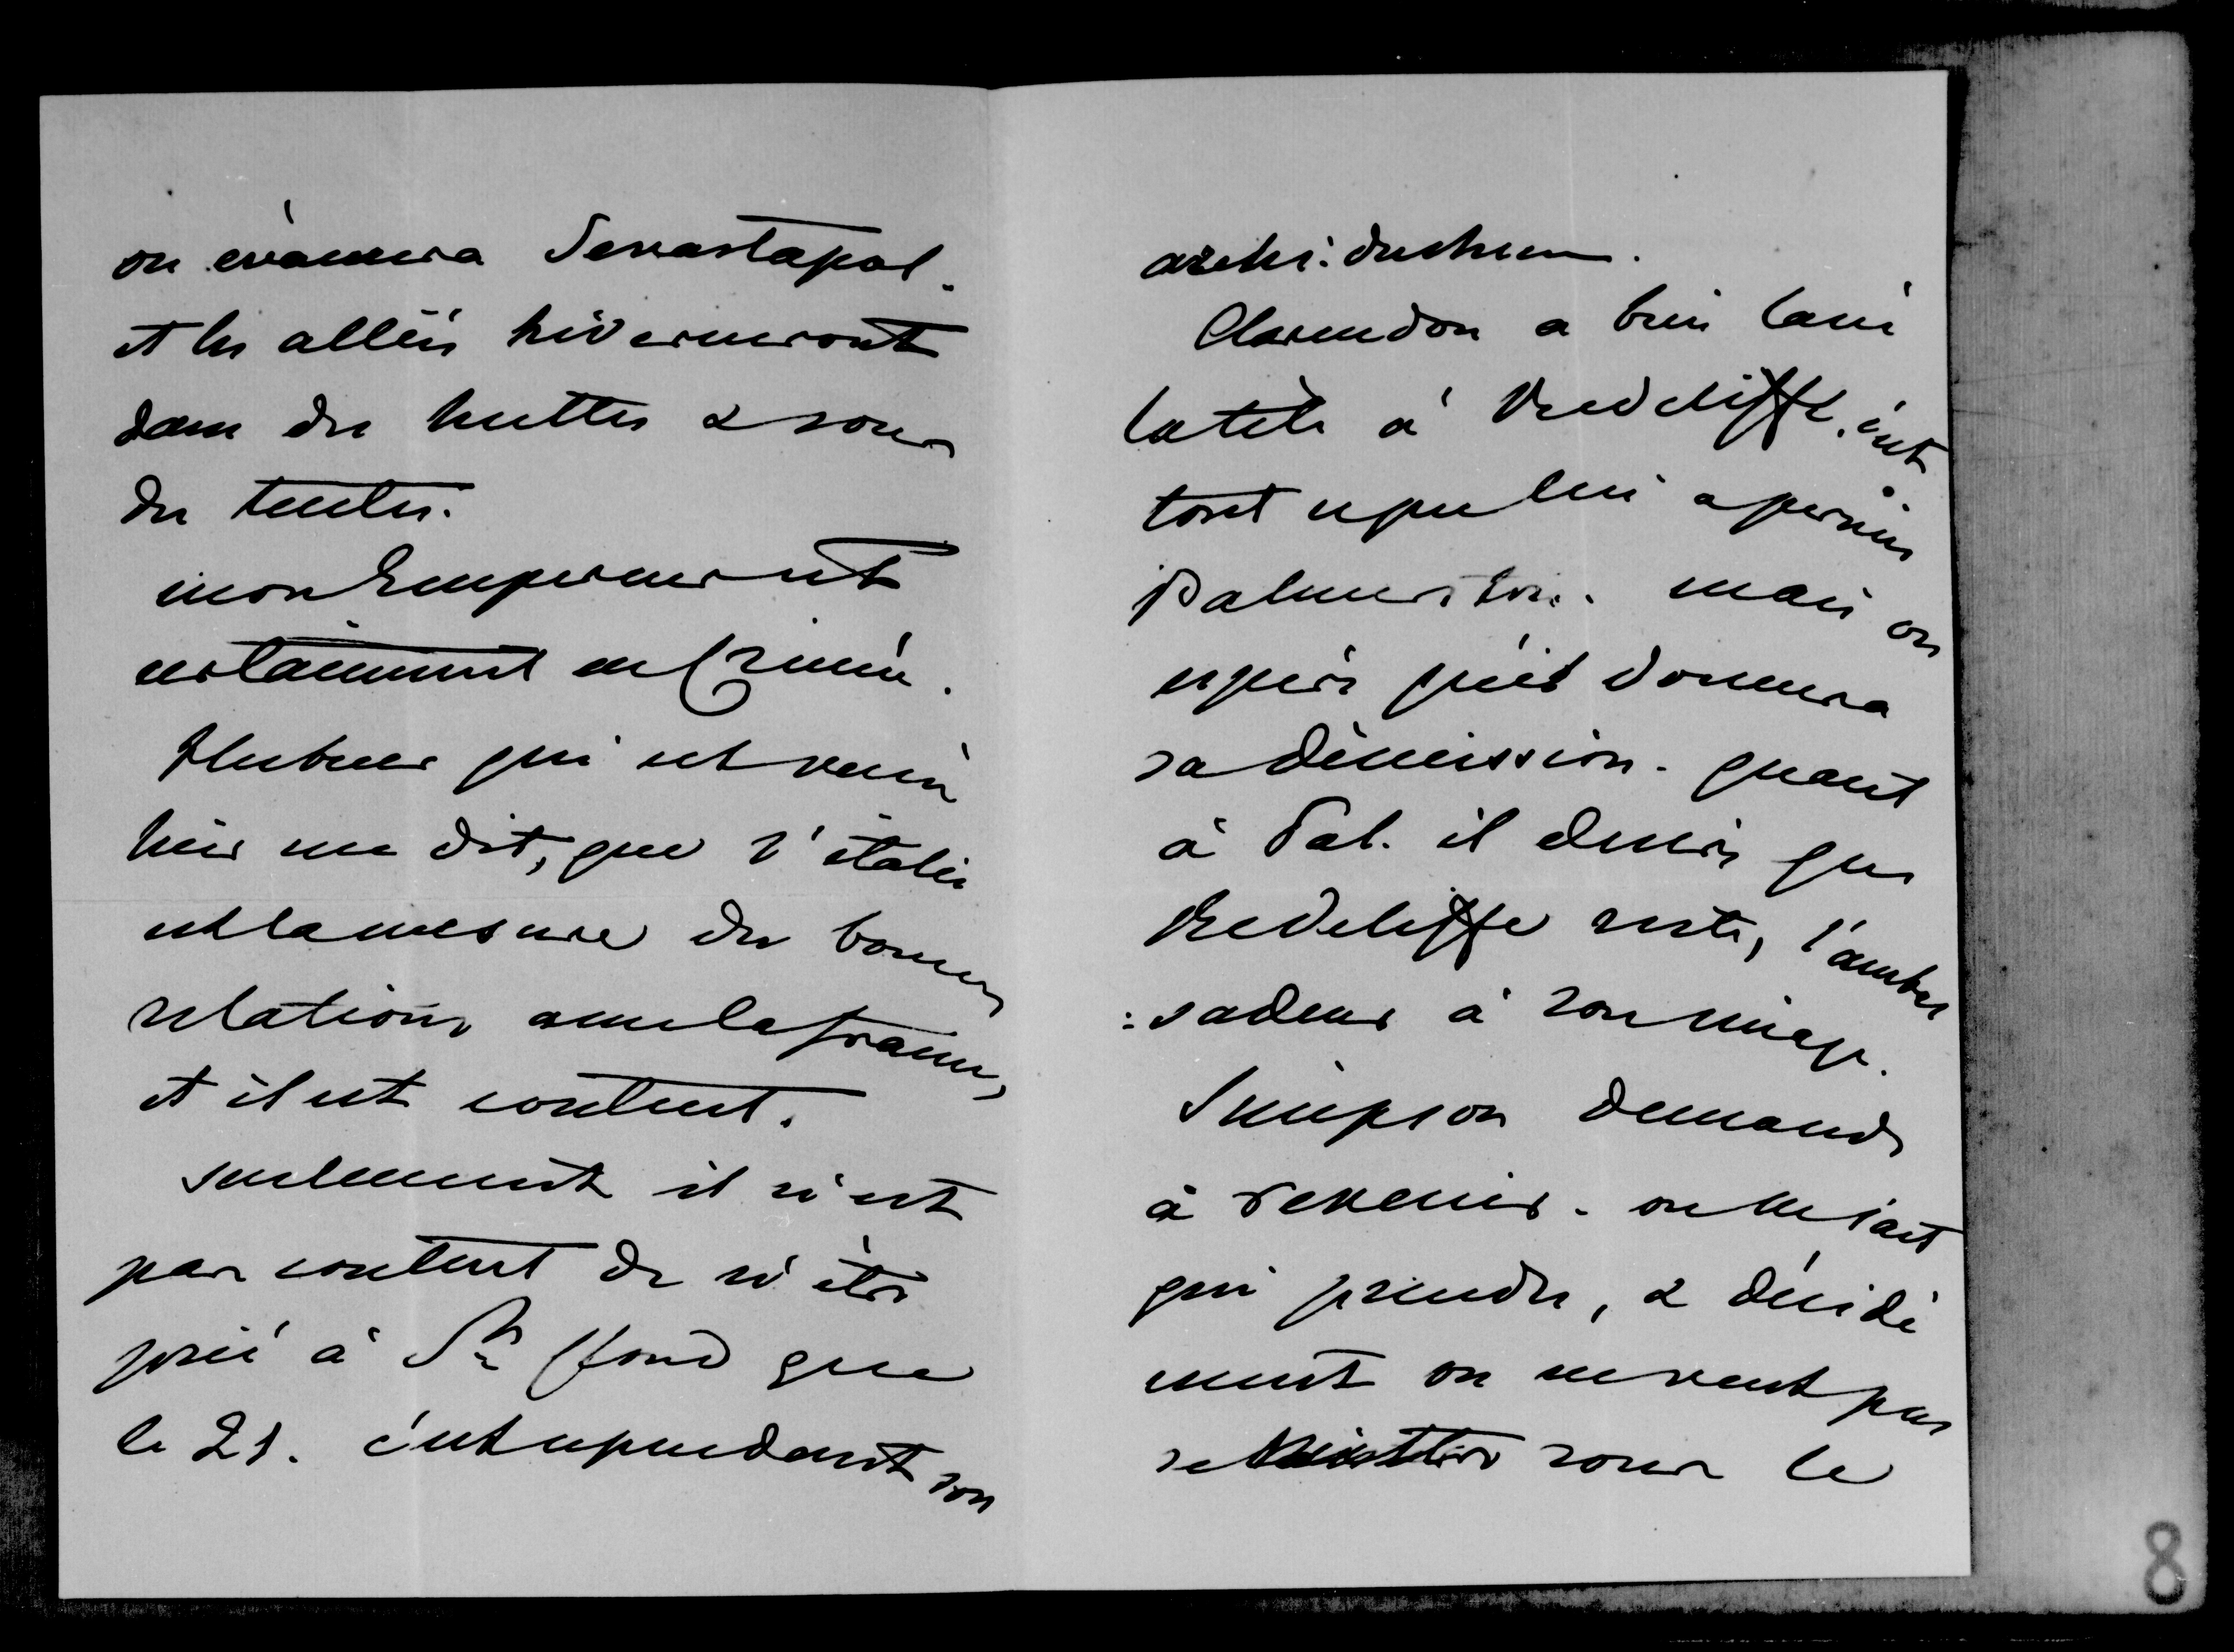 on évacuera Sevastapol.
et les alliés hiverneront
dans des huttes & sous
des tentes.
mon Empereur est
certainement en Crimée.
Hubner qui est venu
hier me dit, que l'italie
est la mesure des bonnes
relations avec la france,
et il est content.
seulement il n'est
pas content de n'être
prié à St Cloud que
le 21. c'est cependant son
archi: duchesse.
Clarendon a bien lavé
la tête à Redcliffe. c'est
tout ce que lui a permis
Palmerston. mais on
espère qu'il donnera
sa démission. quant
à Pal. il desire que
Redcliffe reste, l'ambas
:sadeur à son image.
Simpson demande
à revenir. on ne sait
qui prendre, & décidé
ment on ne veut pas
se mettre sous le
8